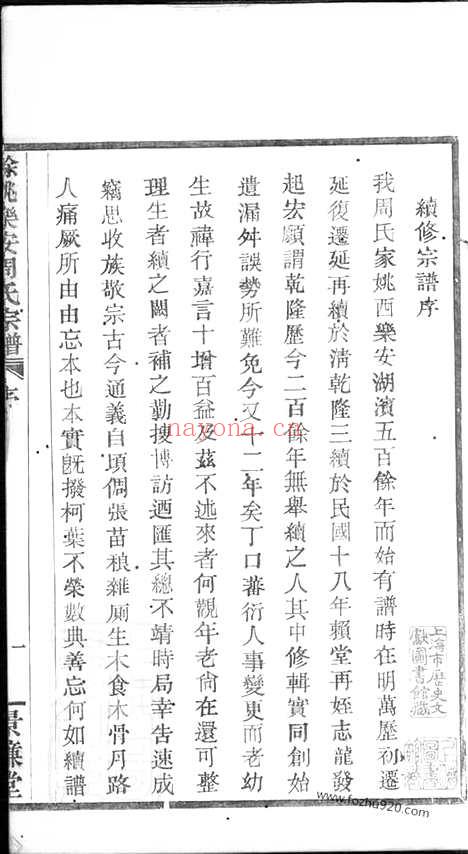 續修宗譜序
我周氏家姚西樂安湖濱五百餘年而始有譜時在明萬歷初遷
延復遷延再續於淸乾隆三續於民國十八年賴堂再姪志龍發
起宏願謂乾隆歷今二百餘年無舉續之人其中修輯實同創始
遺漏舛誤勢所難免今又十二年矣丁口蕃衍人事變更而老幼
生故禕行嘉言十增百益及茲不述來者何觀年老尙在還可整
理生者續之闕者補之勤搜博訪迺匯其總不靖時局幸告速成
竊思收族敬宗古今通義自頃倜張苗稂雜廁生木食木骨月路
人痛厥所由由忘本也本實旣撥柯葉不榮數典善忘何如續譜
餘姚樂安周氏宗譜
序
一
景濂堂
上海市歷史文
獻圖書館藏
nayona.cn
www.fozhu920.com